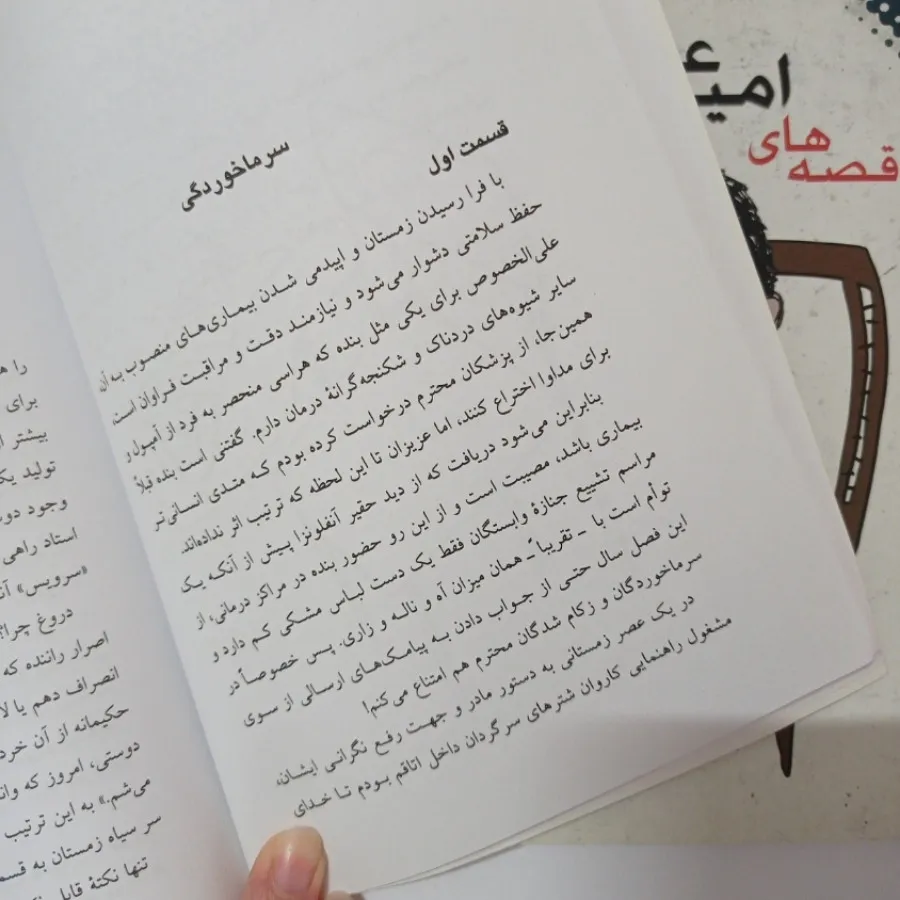 قسمت اول
سرماخوردگی
با فرا رسیدن زمستان و اپیدمی شدن بیماری‌های منصوب به آن
حفظ سلامتی دشوار می‌شود و نیازمند دقت و مراقبت فراوان است،
علی‌الخصوص برای یکی مثل بنده که هراسی منحصر به فرد از آمپول و
سایر شیوه‌های دردناک و شکنجه‌گرانهٔ درمان دارم. گفتنی است بنده قبلاً
همین‌جا، از پزشکان محترم درخواست کرده بودم که متدی انسانی‌تر
برای مداوا اختراع کنند، اما عزیزان تا این لحظه که ترتیب اثر نداده‌اند.
بنابراین می‌شود دریافت که از دید حقیر آنفلونزا پیش از آنکه یک
بیماری باشد، مصیبت است و از این رو حضور بنده در مراکز درمانی، از
مراسم تشییع جنازهٔ وابستگان فقط یک دست لباس مشکی کم دارد و
توأم است با ـ تقریباً ـ همان میزان آه و ناله و زاری. پس خصوصاً در
این فصل سال حتی از جواب دادن به پیامک‌های ارسالی از سوی
سرماخوردگان و زکام شدگان محترم هم امتناع می‌کنم!
در یک عصر زمستانی به دستور مادر و جهت رفع نگرانی ایشان،
مشغول راهنمایی کاروان شترهای سرگردان داخل اتاقم بودم تا خدای
را
برای
بیشتر
تولید یک
وجود
استاد راهی
«سرویس»
دروغ چرا؟
اصرار راننده که
انصراف دهم یا
حکیمانه از آن
دوستی، امروز که
می‌شم.» به این ترتیب
سر سیاه زمستان به
تنها نکتهٔ
قصه‌های